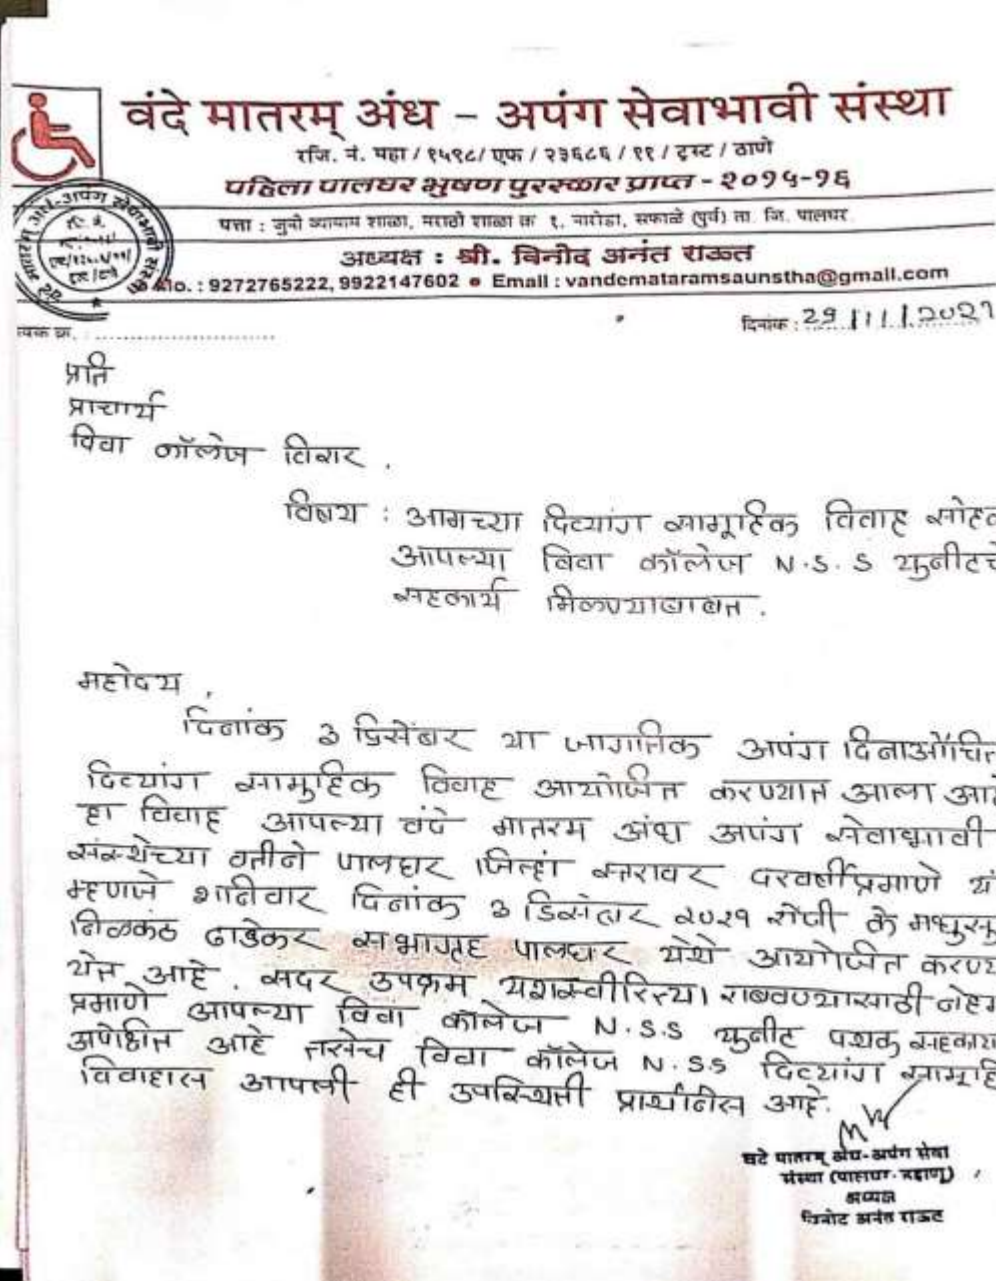 वंदे मातरम् अंध - अपंग सेवाभावी संस्था
रजि. नं. महा / १५९८/ एफ / २३६८६ / ११ / ट्रस्ट / ठाणे
पहिला पालघर भुषण पुरस्कार प्राप्त - २०१५-१६
पत्ता : जुनी व्यायाम शाळा, मराठी शाळा क्र १, नारोडा, सफाळे (पुर्व) ता. जि. पालघर
अध्यक्ष : श्री. विनोद अनंत राऊत
Mo. : 9272765222, 9922147602 ● Email : vandemataramsaunstha@gmail.com
दिनांक : 29 / 11 / 2021
प्रति
प्राचार्य
विवा कॉलेज विरार .
विषय : आमच्या दिव्यांग सामूहिक विवाह
आपल्या विवा कॉलेज N.S.S
सहकार्य मिळण्याबाबत .
महोदय ,
दिनांक ३ डिसेंबर या जागतिक अपंग
दिव्यांग सामुहिक विवाह आयोजित करण्यात आला
हा विवाह आपल्या वंदे मातरम अंध अपंग सेवाभावी
संस्थेच्या वतीने पालघर जिल्हा स्तरावर दरवर्षीप्रमाणे
म्हणजे शनिवार दिनांक ३ डिसेंबर २०२१ रोजी
निळकंठ सभागृह पालघर येथे आयोजित
येत आहे . सदर उपक्रम यशस्वीरित्या राबवण्यासाठी
प्रमाणे आपल्या विवा कॉलेज N.S.S युनीट पथक
अपेक्षित आहे तसेच विवा कॉलेज N.SS दिव्यांग
विवाहास आपली ही उपस्थिती प्रार्थनीस आहे.
वंदे मातरम् अंध-अपंग सेवा
संस्था (पालघर-डहाणू)
अध्यक्ष
विनोद अनंत राऊत